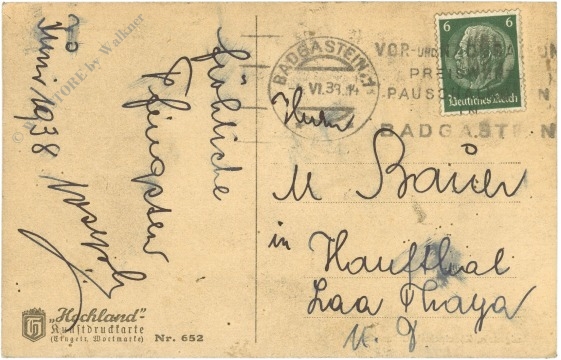 Juni 1938
Fröhliche
Pfingsten
© STORE by Walkner
"Hochland"
Kunstdruckkarte
(Eingetr. Wortmarke) Nr. 652
BADGASTEIN
VI.38.14
VOR- UND
PREISWERTE
PAUSCH
IN
BADGASTEIN
6 6
Deutsches Reich
Herrn
M Bauer
in Hanfthal
Laa Thaya